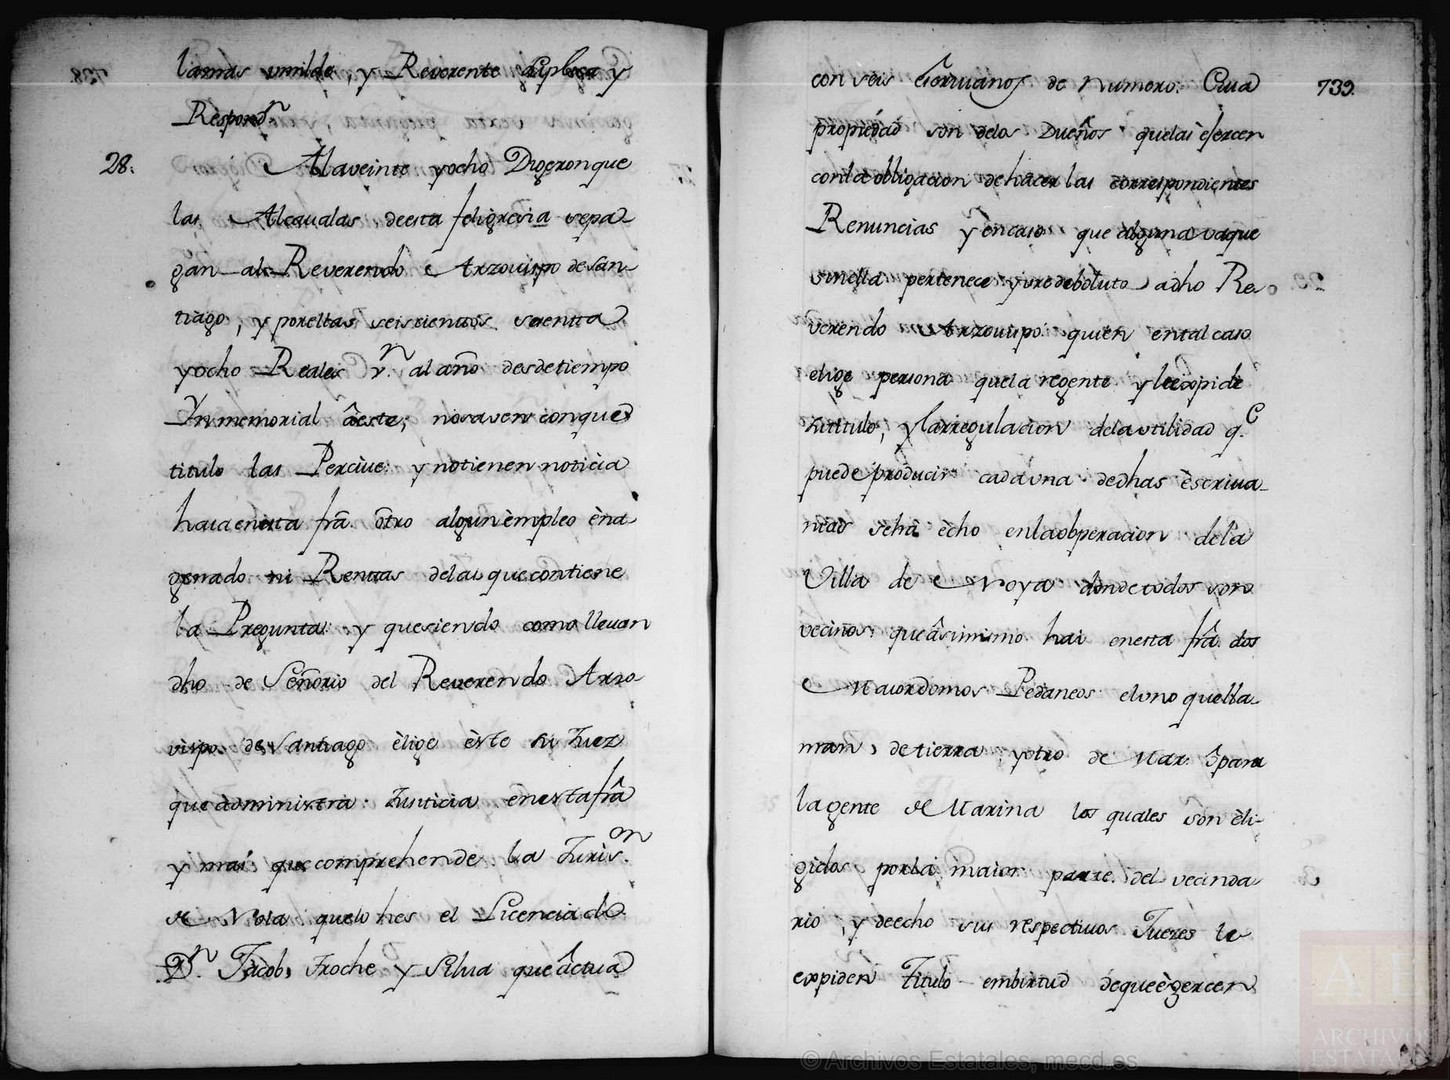 lamas umilde, y Reverente suplica y
Respond.n
28. Alaveinte yocho Digeron que
las Alcavalas deesta feligresia sepa
gan al Reverendo Arzovispo de San
tiago, y porellas seiscientos sesenta
yocho Reales v.n al año desde tiempo
Ynmemorial âesta; nosaven conque
titulo las Percive: y notienen noticia
haia enesta frâ. ôtro algun êmpleo êna
genado ni Rentas delas quecontiene
la Pregunta: y quesiendo como llevan
dho de Señorio del Reverendo Arzo
vispo de Santiago êlige êste su Juez
que administra Justicia enestafrâ
y mas que comprehende la Juris.on
de Noia quelo hes el Licenciado
D.n Jacobo Froche y Silva que âctua
con seis Escrivanos de Numero: Cuia 739.
propiedad son delos Dueños quelas êjercen
conla obligacion de hacer las correspondientes
Renuncias y encaso que alguna vaque
sinella pertenece yuredeboluto adho Re
verendo Arzovispo quien ental caso
elige persona quela regente y leexpide
sutitulo, y larregulacion dela utilidad q.e
puede producir cada una dedhas êscriva-
nias sehâ êcho enla obperacion dela
Villa de Noya donde todos son
vecinos: que âsimismo hai enesta frâ. dos
Maiordomos Pedaneos eluno quella-
man, de tierra, yotro de Mar: para
lagente de Marina los quales son êli-
gidos porla maior parte del vecinda
rio, y deecho sus respectivos Jueces le
expiden Titulo embirtud dequeêgercen
© Archivos Estatales, mecd.es
ARCHIVOS
ESTATA